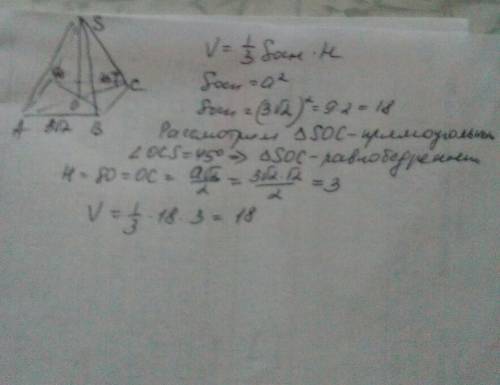 S
V = 1/3 Sосн · H
Sосн = a²
Sосн = (3√2)² = 9·2 = 18
A 3√2 B
O
C
Рассмотрим △SOC-прямоугольн
∠OCS=45° ⇒ △SOC-равнобедренн
H = SO = OC = a√2/2 = 3√2·√2/2 = 3
V = 1/3 · 18 · 3 = 18